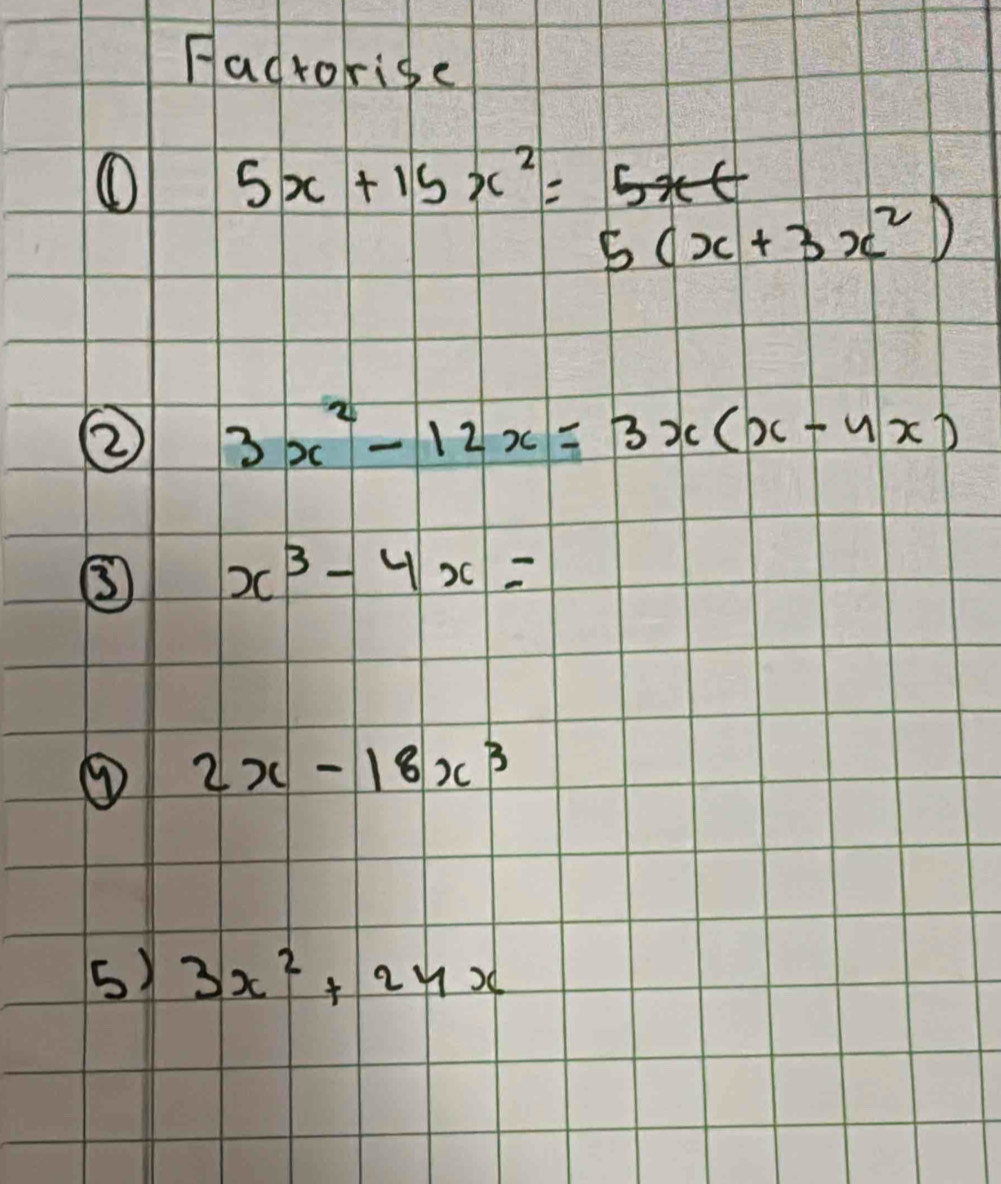 Factorise
① 5x + 15x² = ~~5x(~~
5(x + 3x²)
② 3x² - 12x = 3x(x - 4x)
③ x³ - 4x =
④ 2x - 18x³
5) 3x² + 24x